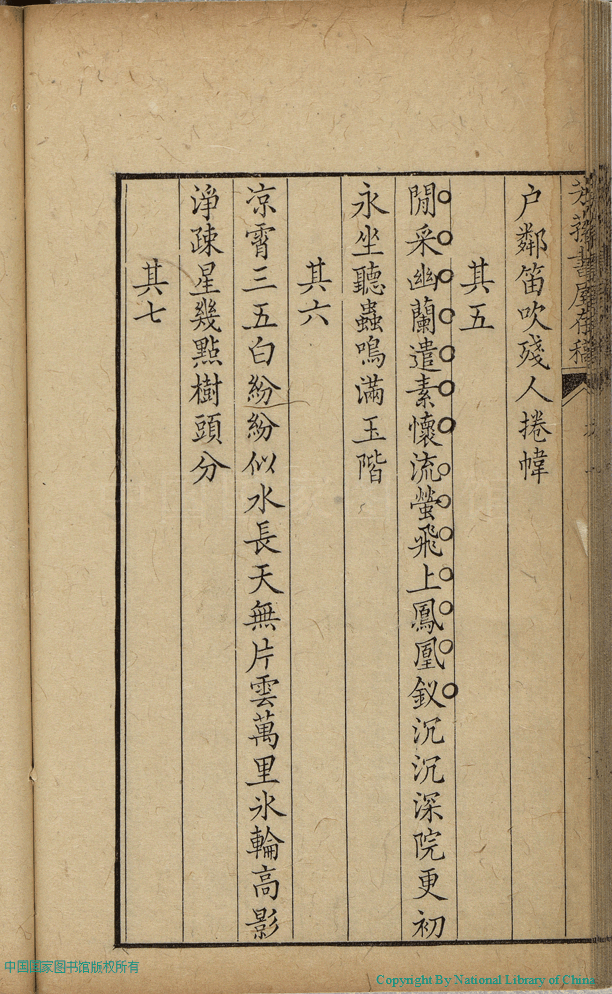 書屋存稿
户鄰笛吹殘人捲幃
其五
閒采幽蘭遣素懷流螢飛上鳳凰釵沉沉深院更初
永坐聽蟲鳴滿玉階
其六
凉霄三五白紛紛似水長天無片雲萬里氷輪高影
淨疎星幾點樹頭分
其七
中国国家图书馆版权所有
Copyright By National Library of China